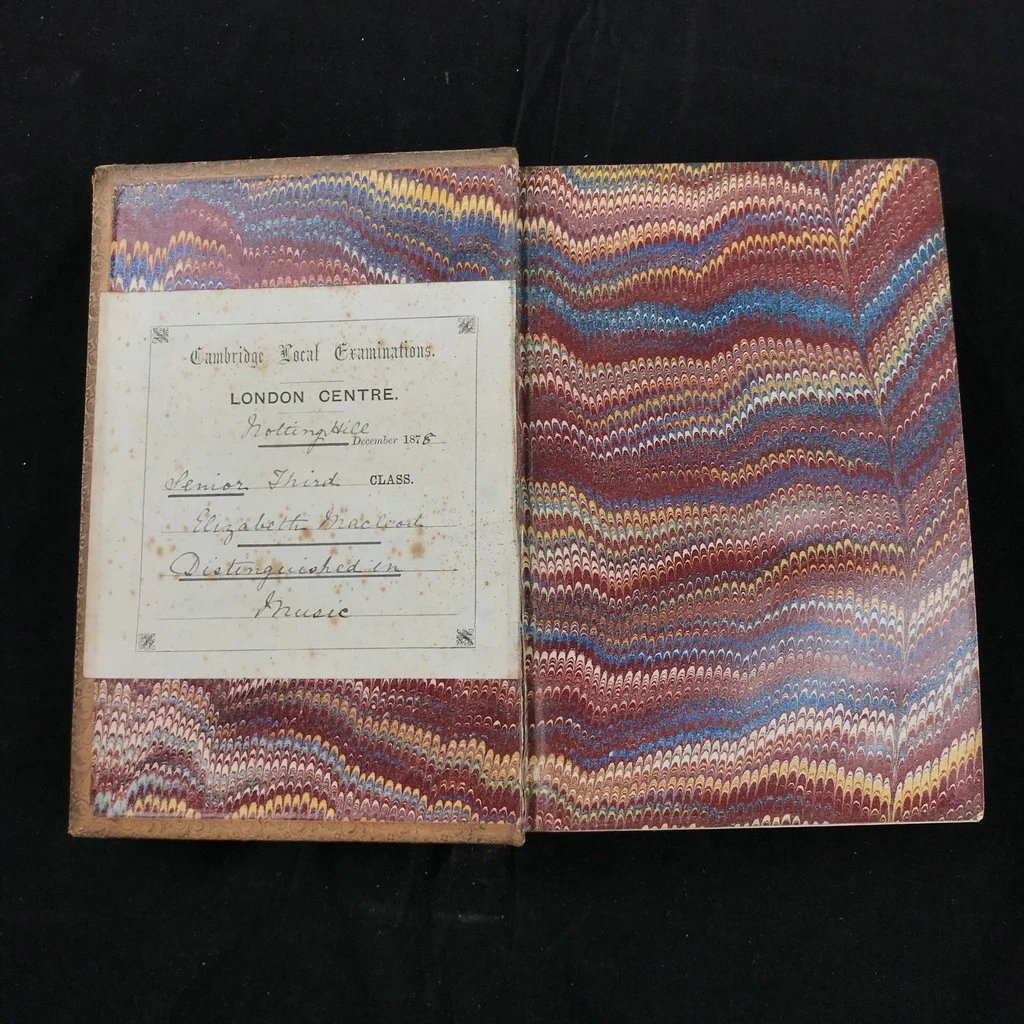 Cambridge Local Examinations.
LONDON CENTRE.
Notting Hill
December 1875
Senior Third CLASS.
Elizabeth Macleod
Distinguished in
Music